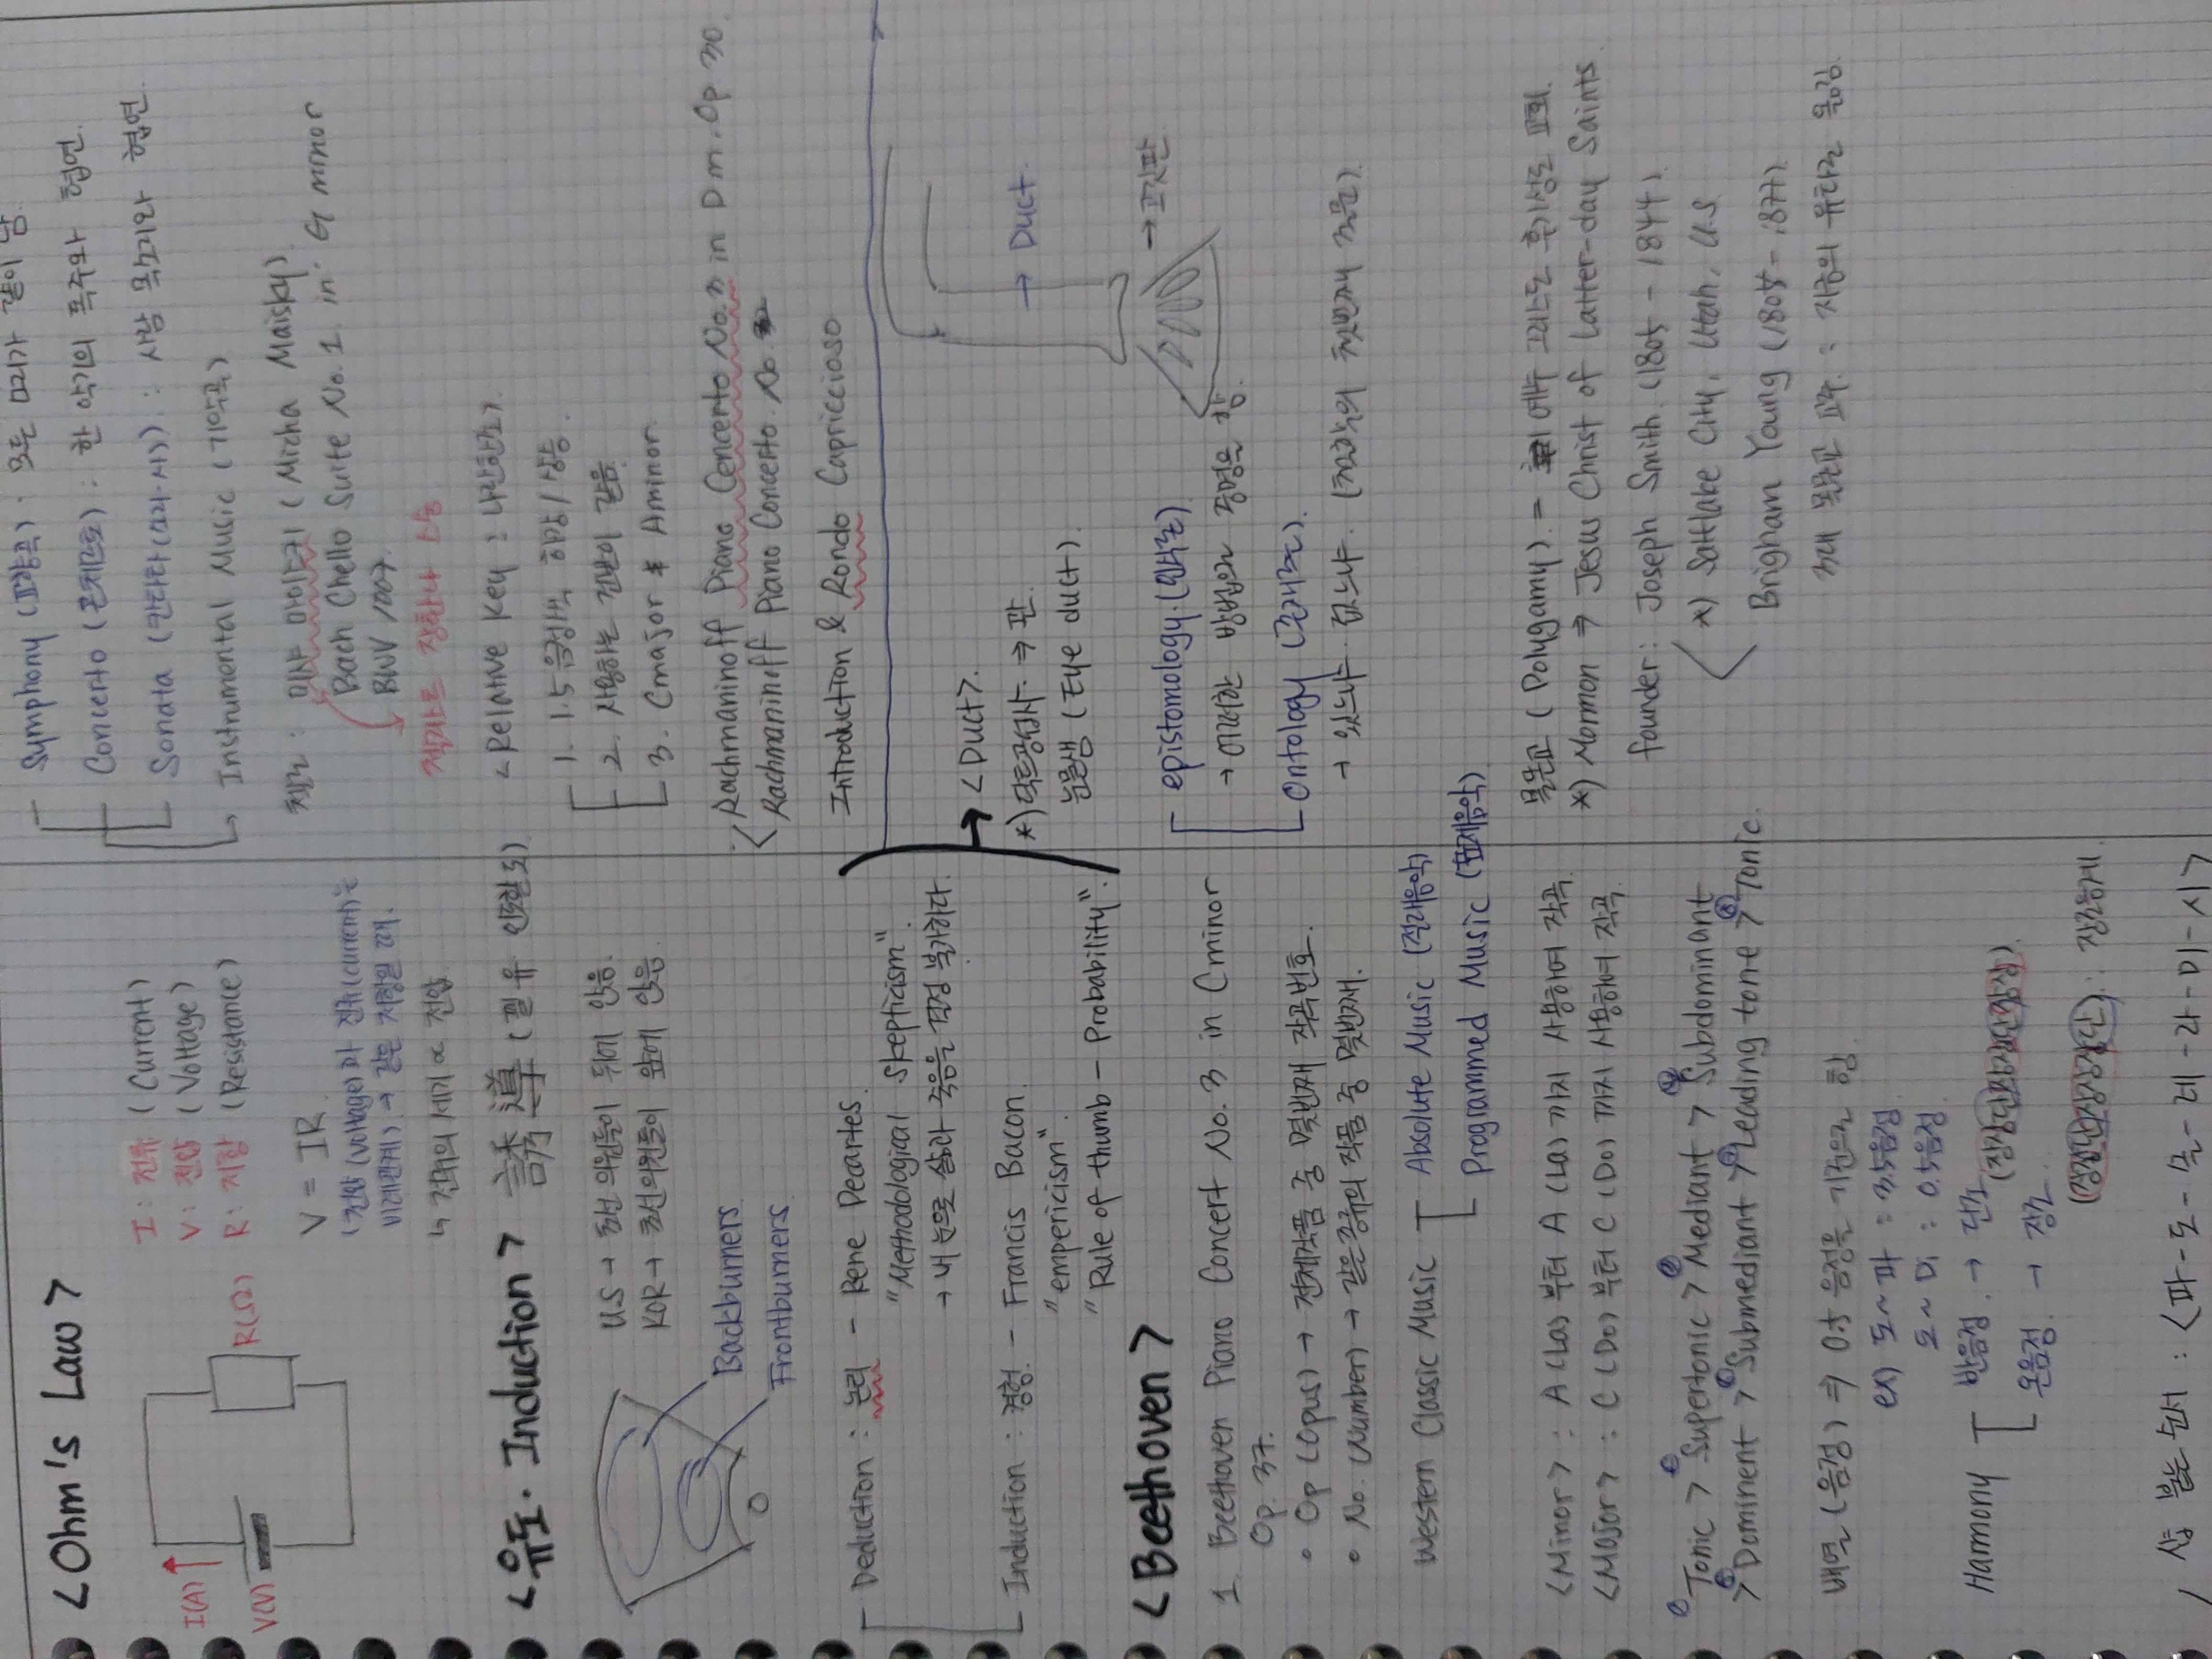 <Ohm's Law>
I(A)
V(V)
R(Ω)
I : 전류 (Current)
V : 전압 (Voltage)
R : 저항 (Resistance)
V = IR
(전압(Voltage)과 전류(current)는
비례관계) → 같은 저항일 때.
↳ 전류의 세기 ∝ 전압
<유도. Induction> 誘導 (꾈 유 인도할 도)
US → 의원들이 뒤에 앉음.
KOR → 의원들이 앞에 앉음.
Backburners
Frontburners
Deduction : 논리 - Rene Decartes
"Methodological Skepticism".
→ 내 눈으로 삶과 죽음을 결정 불가하다.
Induction : 경험 - Francis Bacon
"empericism".
"Rule of thumb - Probability".
<Beethoven>
1. Beethoven Piano Concert No. 3 in Cminor
Op. 37.
• Op (opus) → 전체작품 중 몇번째 작곡번호.
• No. (Number) → 같은종류의 작품 중 몇번째.
Western Classic Music
Absolute Music (절대음악)
Programmed Music (표제음악)
<Minor> : A (La) 부터 A (La) 까지 사용하여 작곡.
<Major> : C (Do) 부터 C (Do) 까지 사용하여 작곡.
① Tonic > ② Supertonic > ③ Mediant > ④ Subdominant
> ⑤ Dominent > ⑥ Submediant > ⑦ Leading tone > ⑧ Tonic.
(음정) ⇒ 0.5 음정을 기준으로 함
ex) 도 ~ 파 : 3.5음정
도 ~ 미 : 0.5음정
Hamony
반음정. → 단조
온음정. → 장조
Symphony (교향곡) : 모든 소리가 같이 남.
Concerto (콘체르토) : 한 악기의 독주와 협연.
Sonata (칸타타) : 사람 목소리와 협연.
↳ Instrumental Music (기악곡)
첼로 : 미샤 마이스키 (Micha Maisky)
Bach Chello Suite No. 1. in. G minor
BWV 1007.
<Relative Key : 나란한조>.
1. 1.5음정씩 하강/상승
2. 사용하는 건반이 같음.
3. Cmajor Aminor.
Rachmaninoff Piano Concerto No. in Dm. Op 30
Rachmaninoff Piano Concerto. No.
Introduction & Rondo Capriccioso
<Duct>.
*) 닥트공사. ⇒ 관.
눈물샘 (Eye duct).
→ Duct.
epistomology. (인식론).
→ 어떠한 방법의 증명을 함.
Ontology (존재론).
→ 있느냐. 없느냐. (철학의 첫번째 질문).
몰몬교 (Polygamy). = 예수 그리스도 후기성도 교회.
*) Mormon ⇒ Jesus Christ of Latter-day Saints
founder : Joseph Smith. (1805 - 1844).
*) Saltlake City, Utah, U.S.
Brigham Young (1805 - 1877).